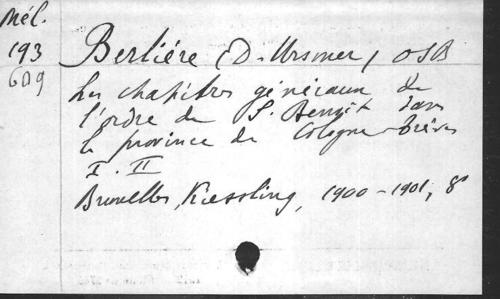 Mél.
193
609
Berlière (D. Ursmer) OSB
Les chapitres généraux de
l'ordre de S. Benoît dans
la province de Cologne-Trèves
I. II
Bruxelles, Kiessling, 1900-1901, 8°